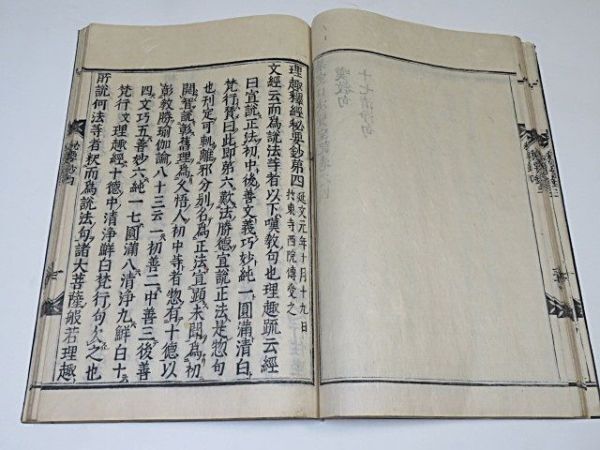 十七清淨句
嘆教句
理趣釋經秘要鈔第四
延文元年十月十九日
於東寺西院傳受之
文經云而為說法等者以下嘆教句也理趣疏云經
曰宣說正法初中後善文義巧妙純一圓滿清白
梵行賛曰此即第六歎法勝德宣說正法是惣句
也刊定可軌離邪分別名為正法宣顕未聞為初
開智說彰舊理為文悟人初中等者惣有十德以
彰教勝瑜伽論八十三云一初善二中善三後善
四文巧五善妙六純一七圓滿八清淨九鮮白十
梵行文理趣經十德中清淨鮮白梵行句欠之也
所說何法等者択而為說法句諸大菩薩般若理趣